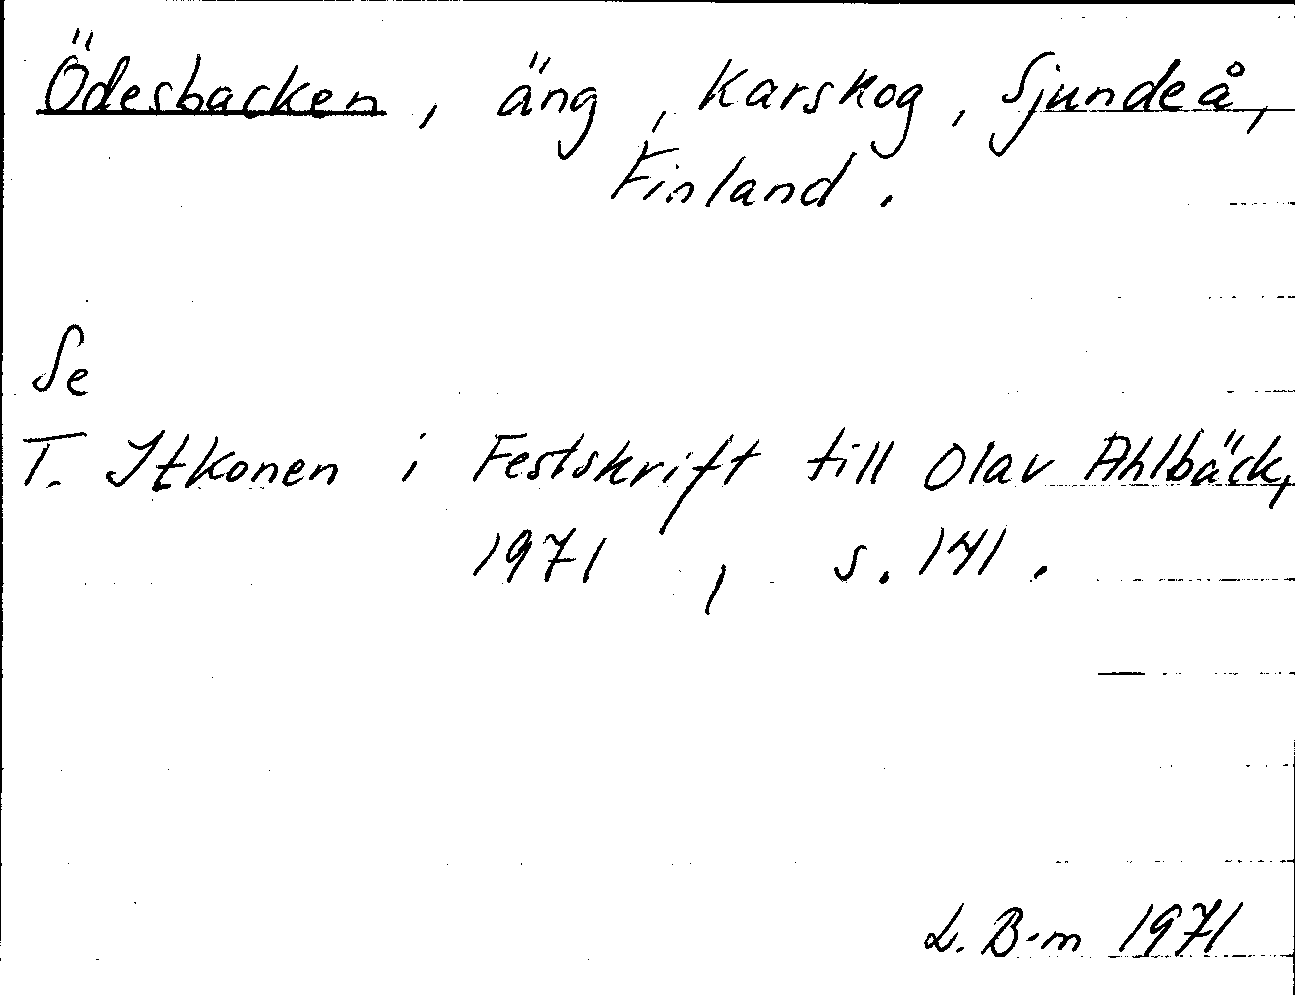 Ödesbacken, äng, Karskog, Sjundeå,
Finland.
Se
T. Itkonen i Festskrift till Olav Ahlbäck,
1971, s. 141.
L. B-m 1971